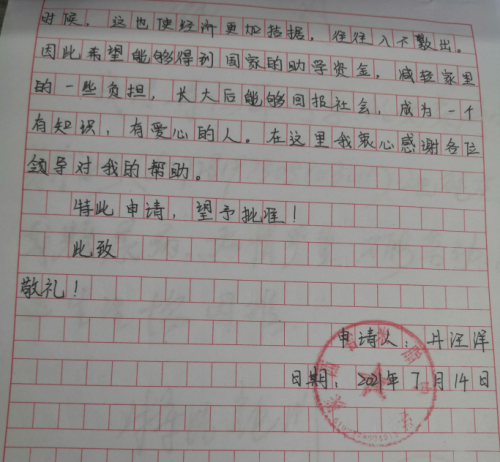 时候。这也使经济更加拮据，往往入不敷出。
因此希望能够得到国家的助学资金，减轻家里
的一些负担，长大后能够回报社会，成为一个
有知识，有爱心的人。在这里我衷心感谢各位
领导对我的帮助。
特此申请，望予批准！
此致
敬礼！
申请人：井汪洋
日期：2021年7月14日